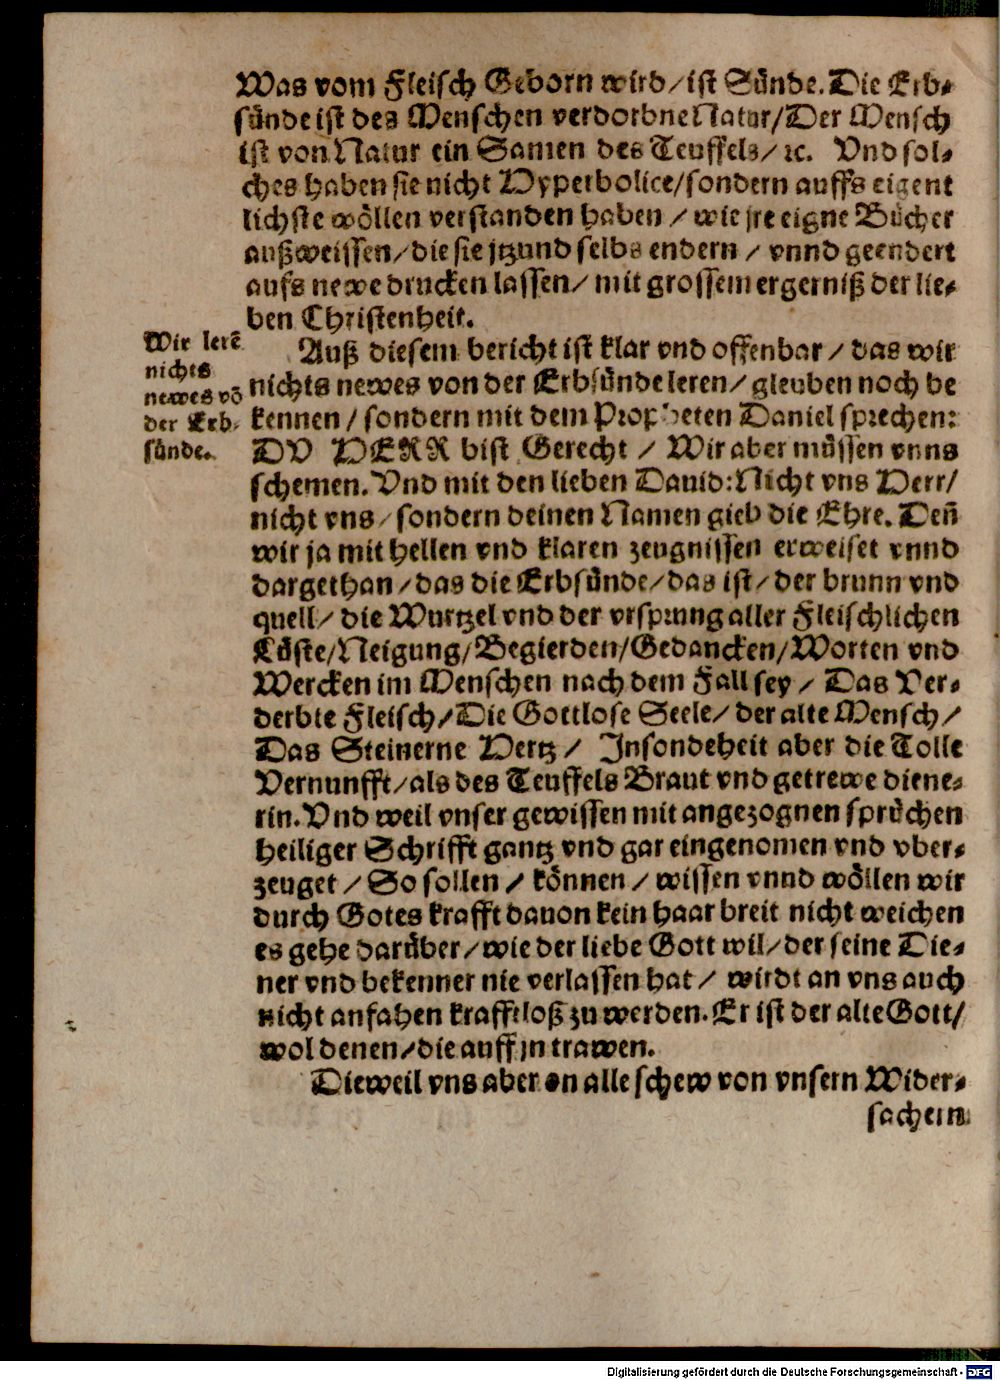 Was vom Fleisch Geborn wird/ist Sünde. Die Erb-
sünde ist des Menschen verdorbne Natur/Der Mensch
ist von Natur ein Samen des Teuffels/ ꝛc. Vnd sol-
ches haben sie nicht Hyperbolice/sondern auffs eigent
lichste wöllen verstanden haben / wie jre eigne Bücher
außweissen/die sie jtzund selbs endern / vnnd geendert
aufs newe drucken lassen/ mit grossem ergerniß der lie-
ben Christenheit.
Wir lerē
nichts
newes vō
der Erb-
sünde.
Auß diesem bericht ist klar vnd offenbar / das wir
nichts newes von der Erbsünde leren/ gleuben noch be
kennen / sondern mit dem Propheten Daniel sprechen:
DV HERR bist Gerecht / Wir aber müssen vnns
schemen. Vnd mit den lieben Dauid: Nicht vns Herr/
nicht vns/sondern deinen Namen gieb die Ehre. Deñ
wir ja mit hellen vnd klaren zeugnissen erweiset vnnd
dargethan/das die Erbsünde/das ist/ der brunn vnd
quell/ die Wurtzel vnd der vrsprung aller Fleischlichen
Lüste/Neigung/Begierden/Gedancken/Worten vnd
Wercken im Menschen nach dem Fall sey / Das Ver-
derbte Fleisch/Die Gottlose Seele/ der alte Mensch/
Das Steinerne Hertz / Insondeheit aber die Tolle
Vernunfft/als des Teuffels Braut vnd getrewe diene-
rin. Vnd weil vnser gewissen mit angezognen sprüchen
heiliger Schrifft gantz vnd gar eingenomen vnd vber-
zeuget / So sollen / können / wissen vnnd wöllen wir
durch Gotes krafft dauon kein haar breit nicht weichen
es gehe darüber/wie der liebe Gott wil/der seine Die-
ner vnd bekenner nie verlassen hat / wirdt an vns auch
nicht anfahen krafftloß zu werden. Er ist der alte Gott/
wol denen/die auff jn trawen.
Dieweil vns aber on alle schew von vnsern Wider-
sachern
Digitalisierung gefördert durch die Deutsche Forschungsgemeinschaft - DFG